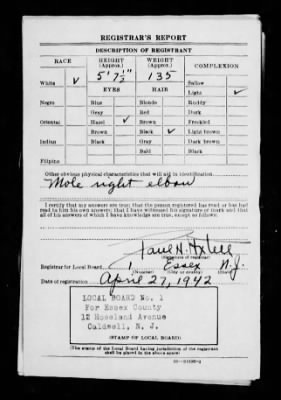 REGISTRAR'S REPORT
DESCRIPTION OF REGISTRANT
RACE HEIGHT (Approx.) WEIGHT (Approx.) COMPLEXION
White ✓ 5' 7½" 135 Sallow
EYES HAIR Light ✓
Negro Blue Blonde Ruddy
Gray Red Dark
Oriental Hazel ✓ Brown Freckled
Brown Black ✓ Light brown
Indian Black Gray Dark brown
Bald Black
Filipino
Other obvious physical characteristics that will aid in identification
Mole right elbow
I certify that my answers are true; that the person registered has read or has had read to him his own answers; that I have witnessed his signature or mark and that all of his answers of which I have knowledge are true, except as follows:
Paul H.
(Signature of registrar)
Registrar for Local Board 1 Essex N.J.
(Number) (City or county) (State)
Date of registration April 27, 1942
LOCAL BOARD No. 1
For Essex County
12 Roseland Avenue
Caldwell, N. J.
(STAMP OF LOCAL BOARD)
(The stamp of the Local Board having jurisdiction of the registrant shall be placed in the above space)